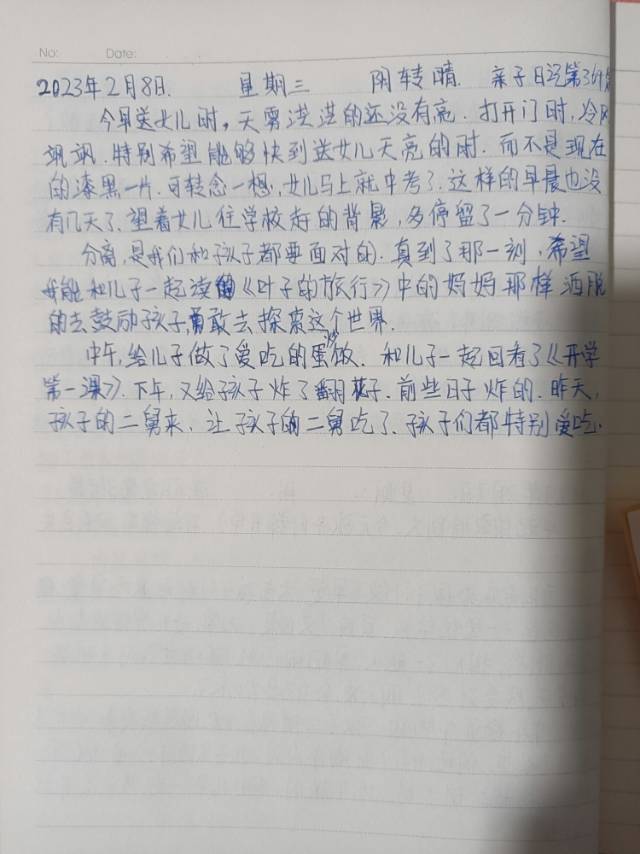 No: Date:
2023年2月8日. 星期三 阴转晴. 亲子日记第
今早送女儿时,天雾洪洪的还没有亮.打开门时,冷风
飒飒.特别希望能够快到送女儿天亮的时.而不是现在
的漆黑一片.可转念一想,女儿马上就中考了.这样的早晨也没
有几天了.望着女儿往学校走的背影,多停留了一分钟.
分离,是我们和孩子都要面对的.真到了那一刻,希望
我能和儿子一起读的《叶子的旅行》中的妈妈那样洒脱
的去鼓励孩子,勇敢去探索这个世界.
中午,给儿子做了爱吃的蛋炒饭.和儿子一起回看了《开学
第一课》.下午,又给孩子炸了翻花子.前些日子炸的.昨天,
孩子的二舅来,让孩子的二舅吃了.孩子们都特别爱吃.